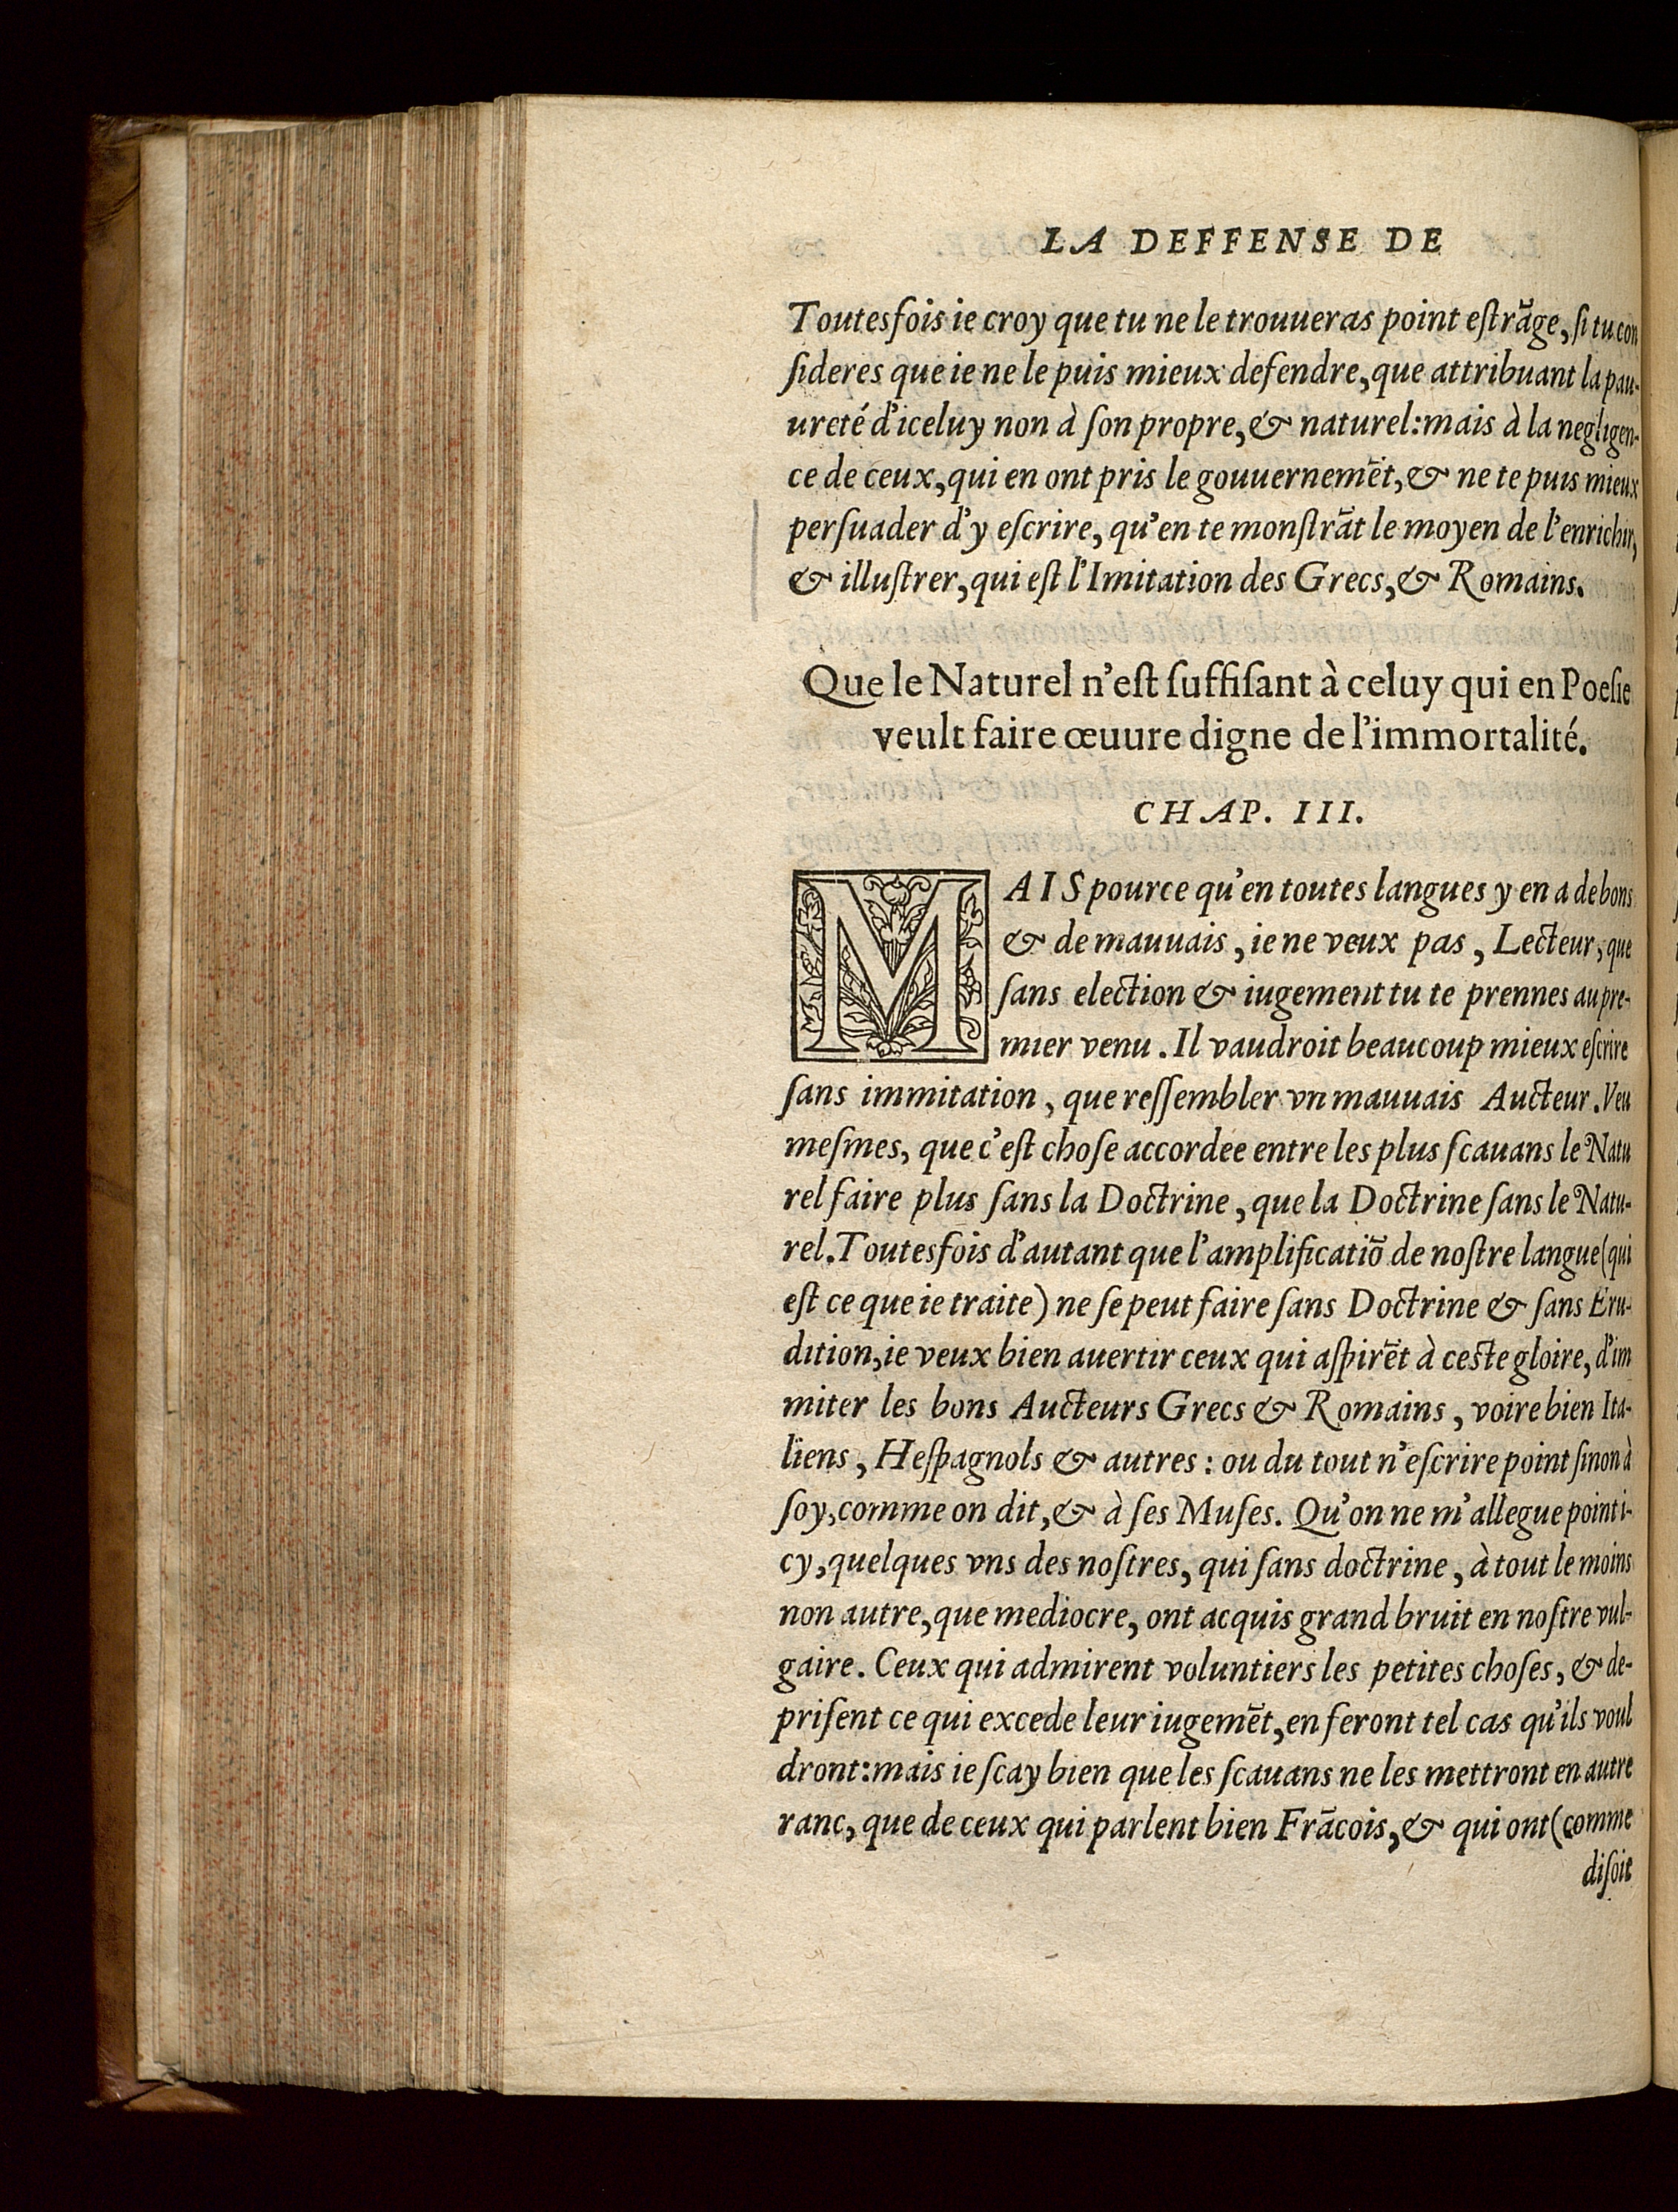 LA DEFFENSE DE
Toutesfois ie croy que tu ne le trouueras point eſtrãge, ſi tu con
ſideres que ie ne le puis mieux defendre, que attribuant la pau-
ureté d'iceluy non à ſon propre, & naturel: mais à la negligen-
ce de ceux, qui en ont pris le gouuernemẽt, & ne te puis mieux
perſuader d'y eſcrire, qu'en te monſtrãt le moyen de l'enrichir,
& illuſtrer, qui eſt l'Imitation des Grecs, & Romains.
Que le Naturel n'eſt ſuffiſant à celuy qui en Poeſie
veult faire œuure digne de l'immortalité.
CHAP. III.
MAIS pource qu'en toutes langues y en a de bons
& de mauuais, ie ne veux pas, Lecteur, que
ſans election & iugement tu te prennes au pre-
mier venu. Il vaudroit beaucoup mieux eſcrire
ſans immitation, que reſſembler vn mauuais Aucteur. Veu
meſmes, que c'eſt choſe accordee entre les plus ſcauans le Natu
rel faire plus ſans la Doctrine, que la Doctrine ſans le Natu-
rel. Toutesfois d'autant que l'amplificatiõ de noſtre langue (qui
eſt ce que ie traite) ne ſe peut faire ſans Doctrine & ſans Eru-
dition, ie veux bien auertir ceux qui aſpirẽt à ceſte gloire, d'im
miter les bons Aucteurs Grecs & Romains, voire bien Ita-
liens, Heſpagnols & autres: ou du tout n'eſcrire point ſinon à
ſoy, comme on dit, & à ſes Muſes. Qu'on ne m'allegue point i-
cy, quelques vns des noſtres, qui ſans doctrine, à tout le moins
non autre, que mediocre, ont acquis grand bruit en noſtre vul-
gaire. Ceux qui admirent voluntiers les petites choſes, & de-
priſent ce qui excede leur iugemẽt, en feront tel cas qu'ils voul
dront: mais ie ſcay bien que les ſcauans ne les mettront en autre
ranc, que de ceux qui parlent bien Frãcois, & qui ont (comme
diſoit